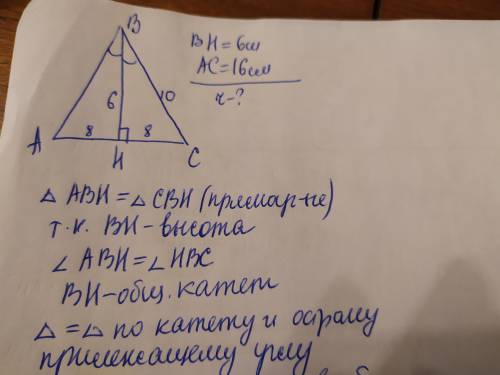 B
BH=6см
AC=16см
r-?
6
10
A
8
8
H
C
△ ABH=△ CBH (прямоуг-е)
т.к. BH-высота
∠ ABH=∠ HBC
BH-общ. катет
△=△ по катету и острому
прилежащему углу